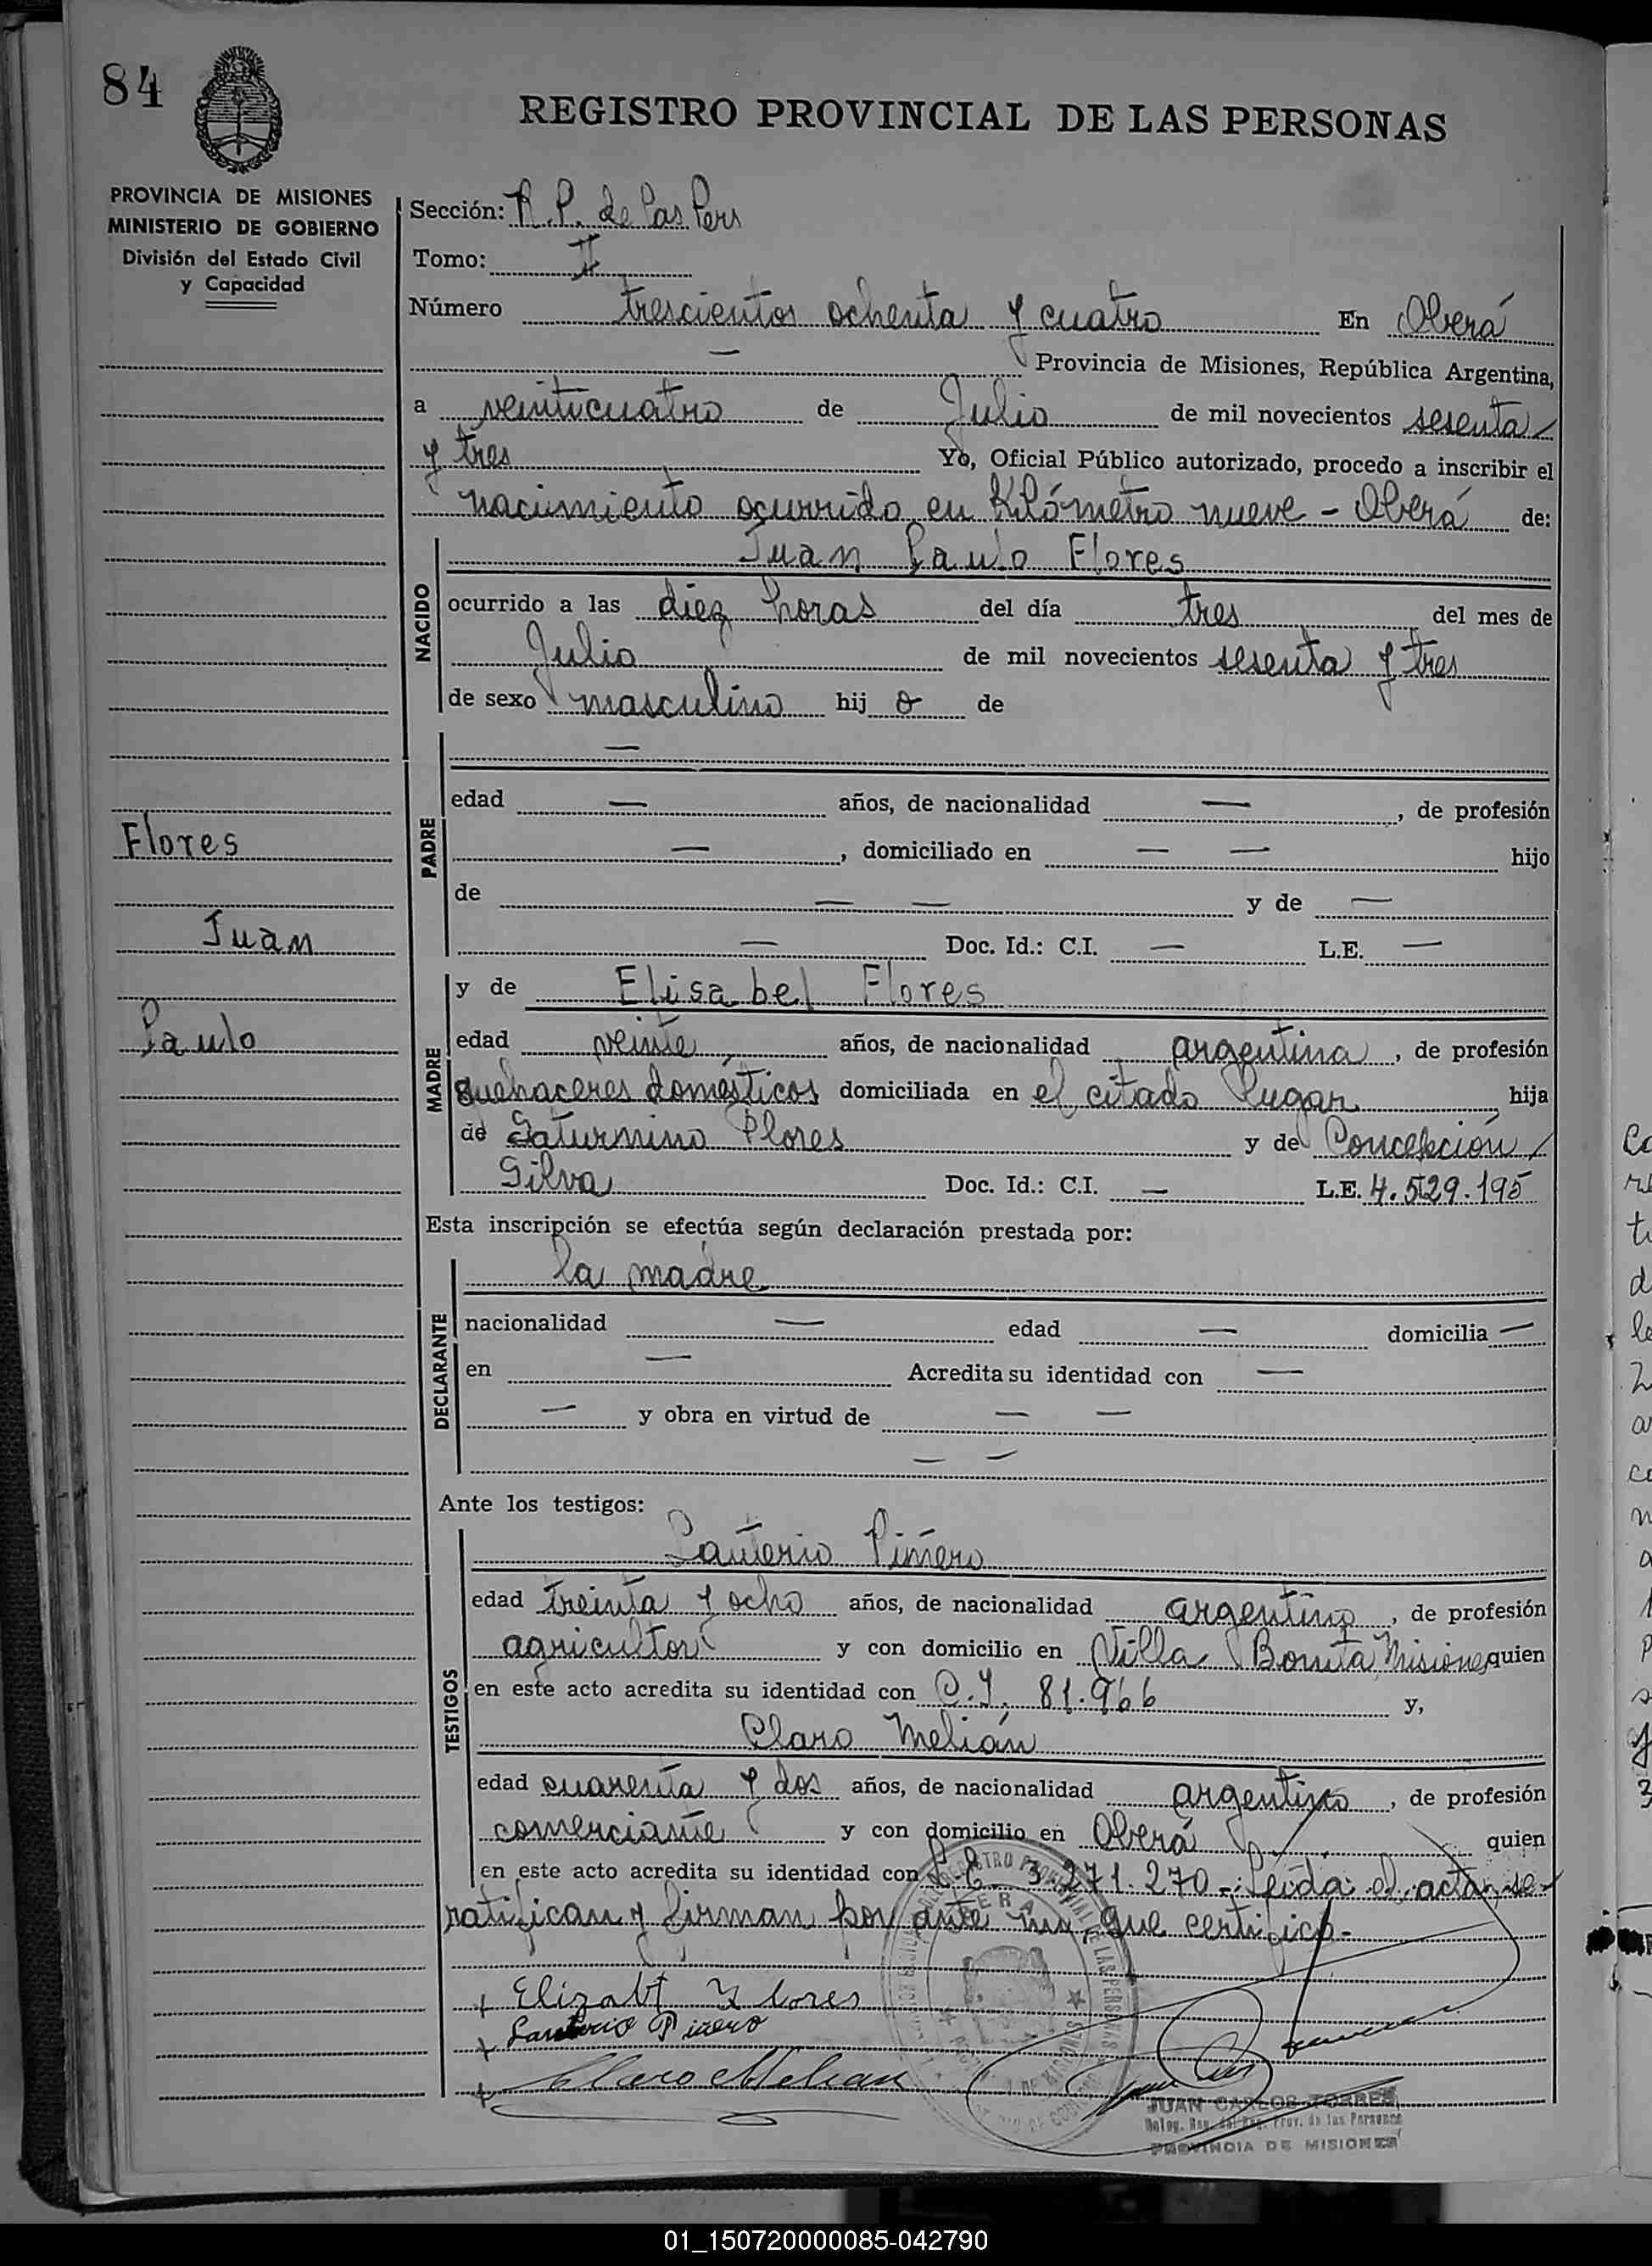 84
REGISTRO PROVINCIAL DE LAS PERSONAS
PROVINCIA DE MISIONES
MINISTERIO DE GOBIERNO
División del Estado Civil
y Capacidad
Sección: R. P. de las Pers
Tomo: II
Número trescientos ochenta y cuatro En Oberá
— Provincia de Misiones, República Argentina,
a veinticuatro de Julio de mil novecientos sesenta
y tres Yo, Oficial Público autorizado, procedo a inscribir el
nacimiento ocurrido en Kilómetro nueve - Oberá de:
NACIDO
Juan Paulo Flores
ocurrido a las diez horas del día tres del mes de
Julio de mil novecientos sesenta y tres
de sexo masculino hij o de
PADRE
—
edad — años, de nacionalidad —, de profesión
—, domiciliado en — — hijo
de — — y de —
— Doc. Id.: C.I. — L.E. —
Flores
Juan
Paulo
MADRE
y de Elisabel Flores
edad veinte años, de nacionalidad argentina, de profesión
quehaceres domésticos domiciliada en el citado lugar hija
de Saturnino Flores y de Concepción /
Silva Doc. Id.: C.I. — L.E. 4.529.195
Esta inscripción se efectúa según declaración prestada por:
DECLARANTE
la madre
nacionalidad — edad — domicilia —
en — Acredita su identidad con —
— y obra en virtud de — —
— —
Ante los testigos:
TESTIGOS
Lauterio Piñero
edad treinta y ocho años, de nacionalidad argentino, de profesión
agricultor y con domicilio en Villa Bonita Misiones quien
en este acto acredita su identidad con C.I. 81.966 y,
Claro Melián
edad cuarenta y dos años, de nacionalidad argentino, de profesión
comerciante y con domicilio en Oberá quien
en este acto acredita su identidad con L.E. 3.271.270 - Leída el acta, se
ratifican y firman por ante mí, que certifico.-
Elizabt Flores
Piñero
Claro Melian
JUAN CARLOS TORRES
PROVINCIA DE MISIONES
01_150720000085-042790